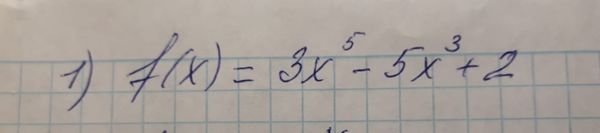 1) f(x) = 3x⁵ - 5x³ + 2